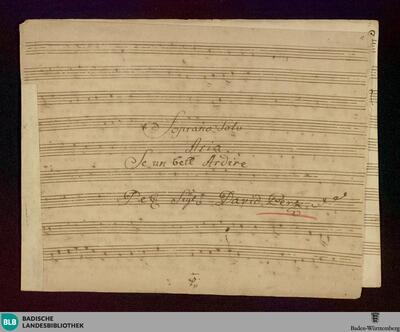 Soprano Solo
Aria
Se un bell Ardire
Del Sigr David Perez
BLB BADISCHE
LANDESBIBLIOTHEK
Baden-Württemberg